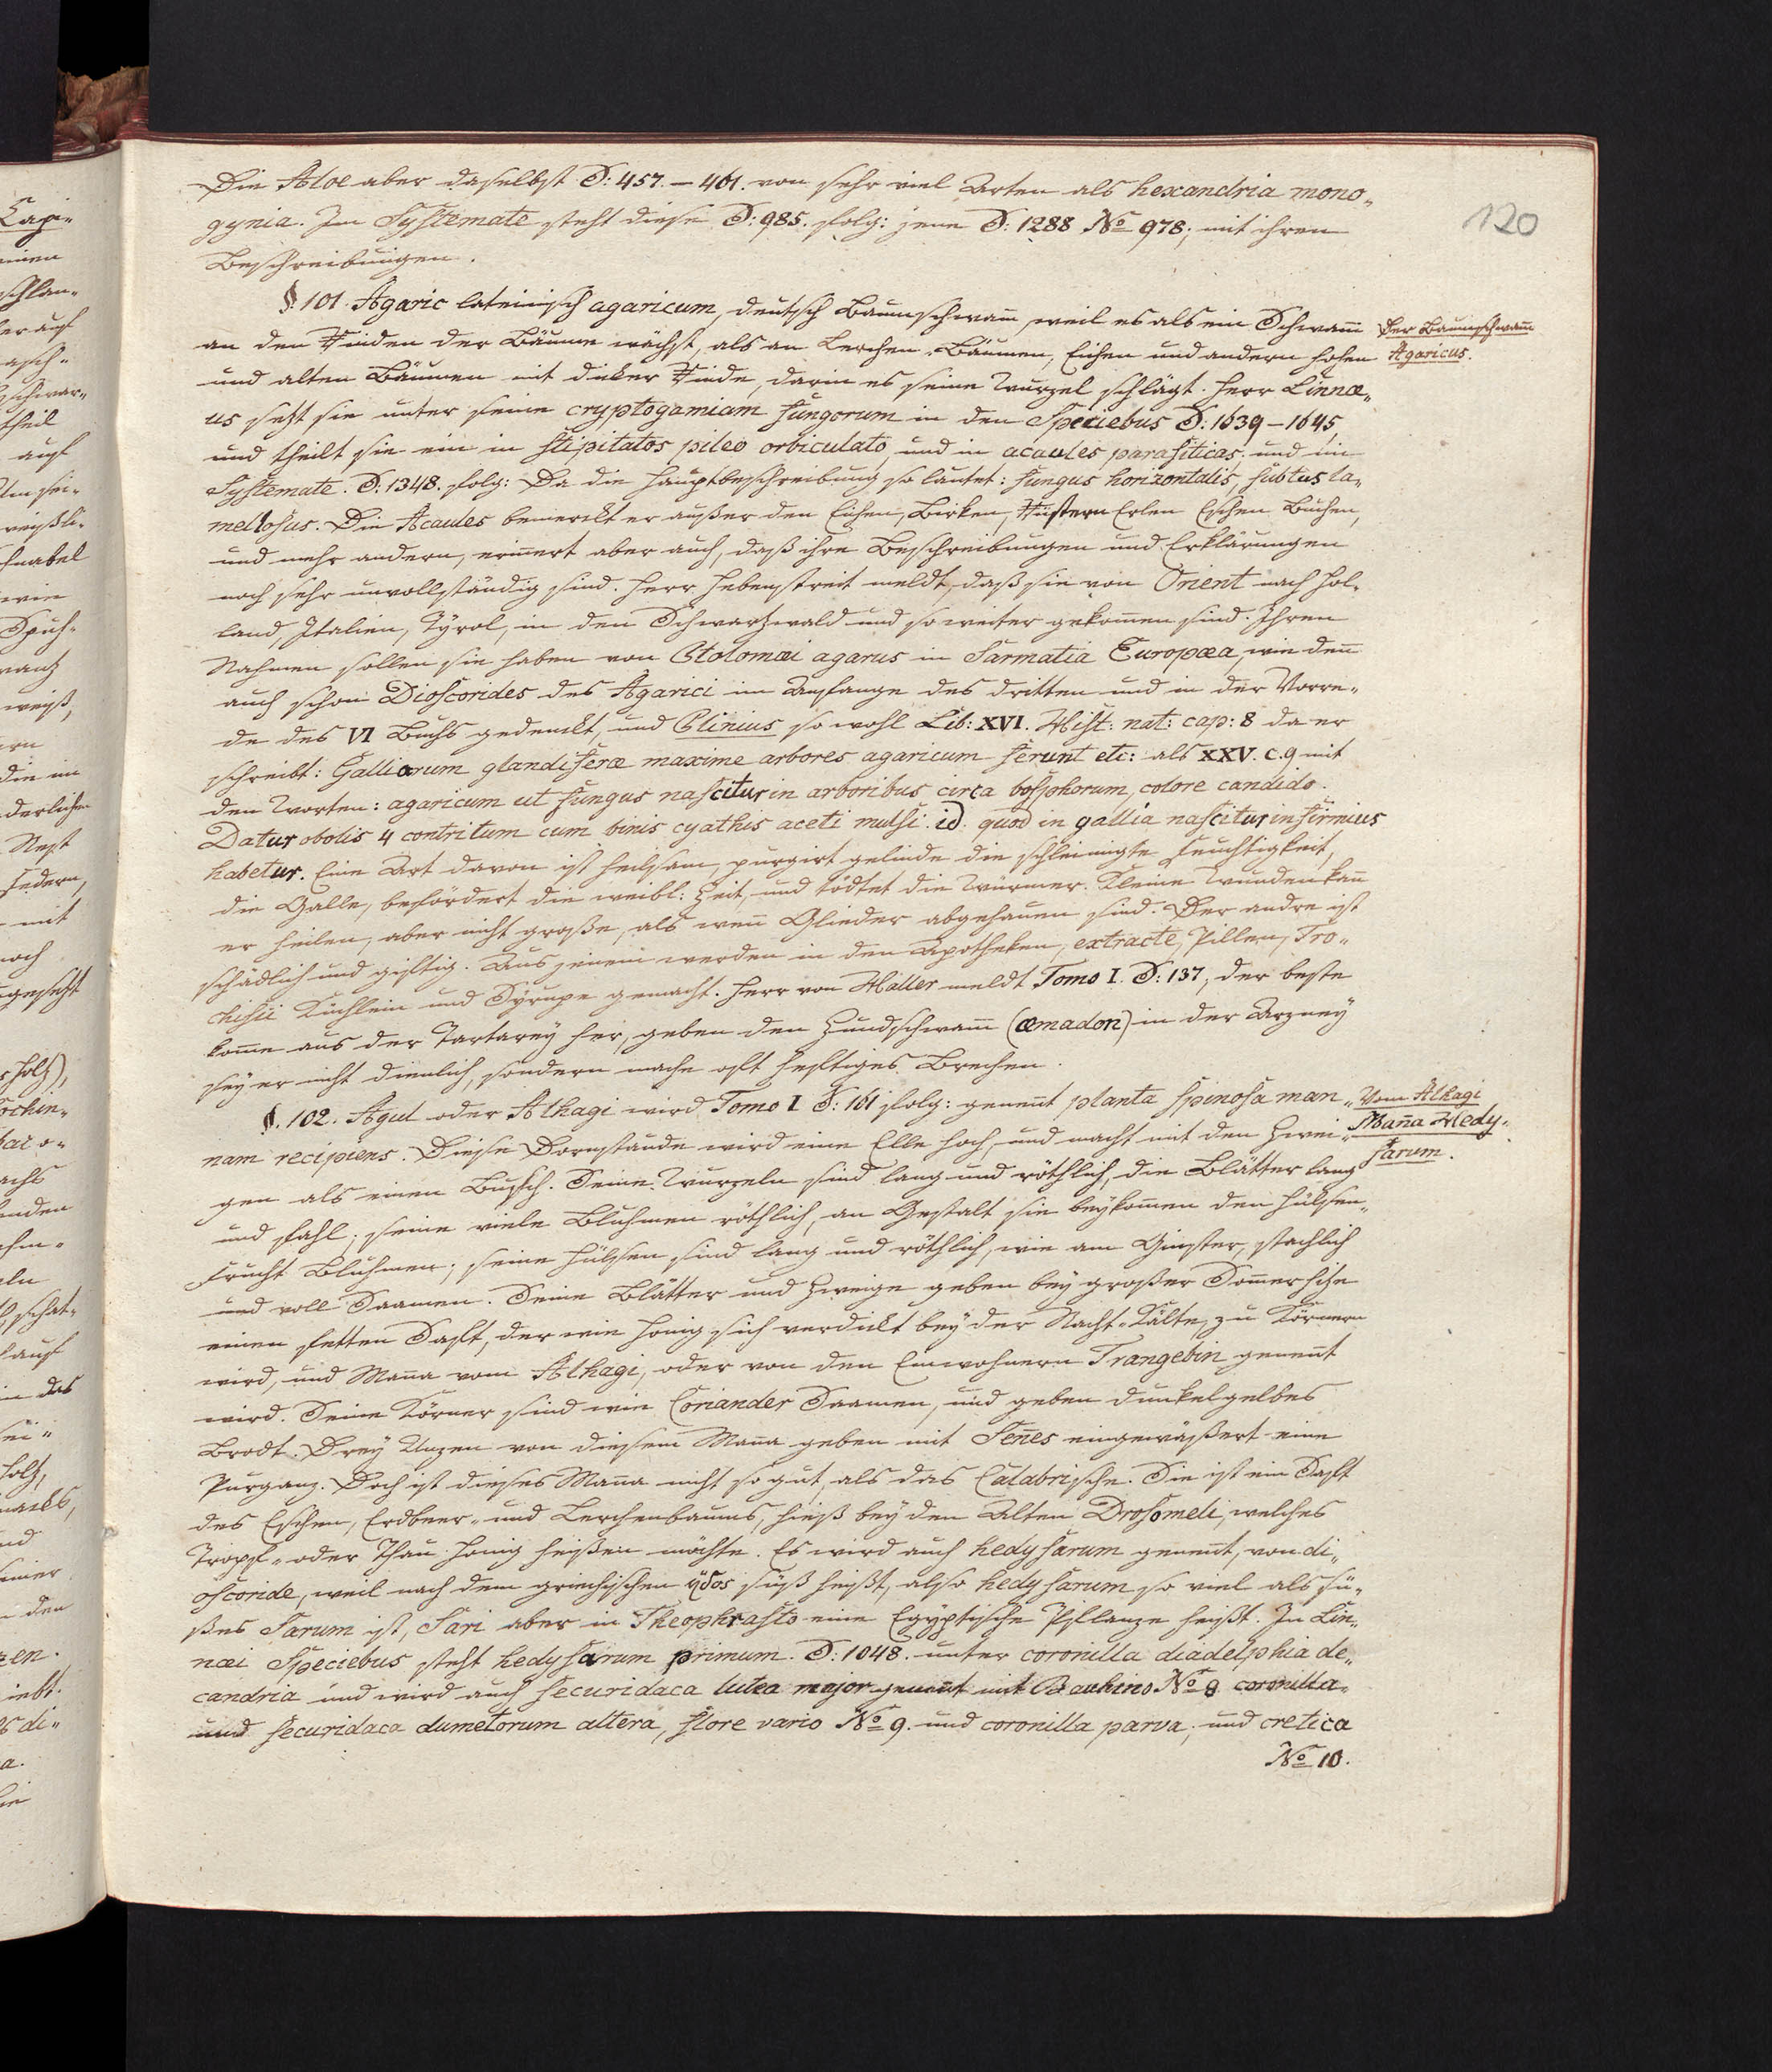 120
Die Aloe aber daselbst S: 457. – 461. von sehr viel Arten als hexandria mono„
gynia. Im Systemate steht diese S: 985. folg: jene S: 1288 No 978; mit ihren
Beschreibungen.
§. 101. Agaric lateinisch agaricum, deutsch Baumschwam̅, weil es als ein Schwam̅
Der Baumschwam̅
an den Rinden der Bäume wächst, als an Lerchen-Bäumen, Eichen und andern hohen
Agaricus.
und alten Bäumen mit dicker Rinde, darin es seine Wurzel schlägt. Herr Linnæ„
us setzt sie unter seine cryptogamiam fungorum in den Speciebus S: 1639 – 1645,
und theilt sie ein in stipitatos pileo orbiculato, und in acaules parasiticas, und im
Systemate. S. 1348. folg: Da die Hauptbeschreibung so lautet: fungus horizontalis, subtus la„
mellosus. Die Acaules bemerckt er außer den Eichen, Birken, Rüstern Erlen Eschen Buchen,
und mehr andern, erinnert aber auch, daß ihre Beschreibungen und Erklärungen
noch sehr unvollständig sind. Herr Hebenstreit meldt, daß sie von Orient nach Hol„
land, Italien, Tyrol, in den Schwartzwald und so weiter gekom̅en sind. Ihren
Nahmen sollen sie haben von Ptolomæi agarus in Sarmatia Europæa, wie den̅
auch schon Dioscorides des Agarici im Anfange des dritten und in der Vorre„
de des VI Buchs gedenckt, und Plinius so wohl Lib: XVI. Hist: nat: cap: 8 da er
schreibt: Galliarum glandiferæ maxime arbores agaricum ferunt etc: als XXV. c. 9 mit
den Worten: agaricum ut fungus nascitur in arboribus circa bosphorum, colore candido.
Datur obolis 4 contritum cum binis cyathis aceti mulsi. id. quod in gallia nascitur infirmius
habetur. Eine Art davon ist heilsam, purgirt gelinde die schleimigte Feuchtigkeit,
die Galle, befördert die weibl: Zeit, und tödtet die Würmer. Kleine Wunden kan̅
er heilen, aber nicht große, als wen̅ Glieder abgehauen sind. Der andre ist
schädlich und gifftig. Aus jenem werden in den Apotheken, extracte, Pillen, Tro„
chisci Küchlein und Syrupe gemacht. Herr von Haller meldt Tomo I. S: 137, der beste
kom̅e aus der Tartarey her, geben den Zundschwam̅ (æmadon) in der Arzney
sey er nicht dienlich, sondern mache oft heftiges Brechen.
§. 102. Agul oder Alhagi wird Tomo I S: 161 folg: genen̅t planta spinosa man„
Vom Alhagi
nam recipiens. Diese Dornstaude wird eine Elle hoch, und macht mit den Zwei„
Man̅a Hedy„
gen als einen Busch. Seine Wurzeln sind lang und röthlich, die Blätter lang
sarum.
und fahl; seine viele Bluhmen röthlich, an Gestalt sie beykom̅en den Hülsen„
frucht Bluhmen; seine Hülsen sind lang und röthlich, wie am Ginster, stachlich
und voll Saamen. Seine Blätter und Zweige geben bey großer Som̅erhitze
einen fetten Saft, der wie Honig sich verdickt bey der Nacht-Kälte, zu Körnern
wird, und Man̅a vom Alhagi, oder von den Einwohnern Trangebin genen̅t
wird. Seine Körner sind wie Coriander Saamen, und geben dunkelgelbes
Brodt. Drey Unzen von diesem Man̅a geben mit Sen̅es eingewäßert eine
Purganz. Doch ist dieses Man̅a nicht so gut, als das Calabrische. Die ist ein Saft
des Eschen, Erdbeer- und Lerchenbaums, hieß bey den Alten Drosomeli, welches
Tropf- oder Thau Honig heißen möchte. Es wird auch hedysarum genen̅t, von di„
oscoride, weil nach dem griechischen ηδος süß heißt, also hedysarum so viel als sü„
ßes Sarum ist, Sari aber in Theophrasto eine Egyptische Pflanze heißt. In Lin„
næi Speciebus steht hedysarum primum. S: 1048. unter coronilla diadelphia de„
candria und wird auch securidaca lutea major genen̅t mit Bauhino No 8 coronilla
und securidaca dumetorum altera, flore vario No 9. und coronilla parva, und cretica
No 10.